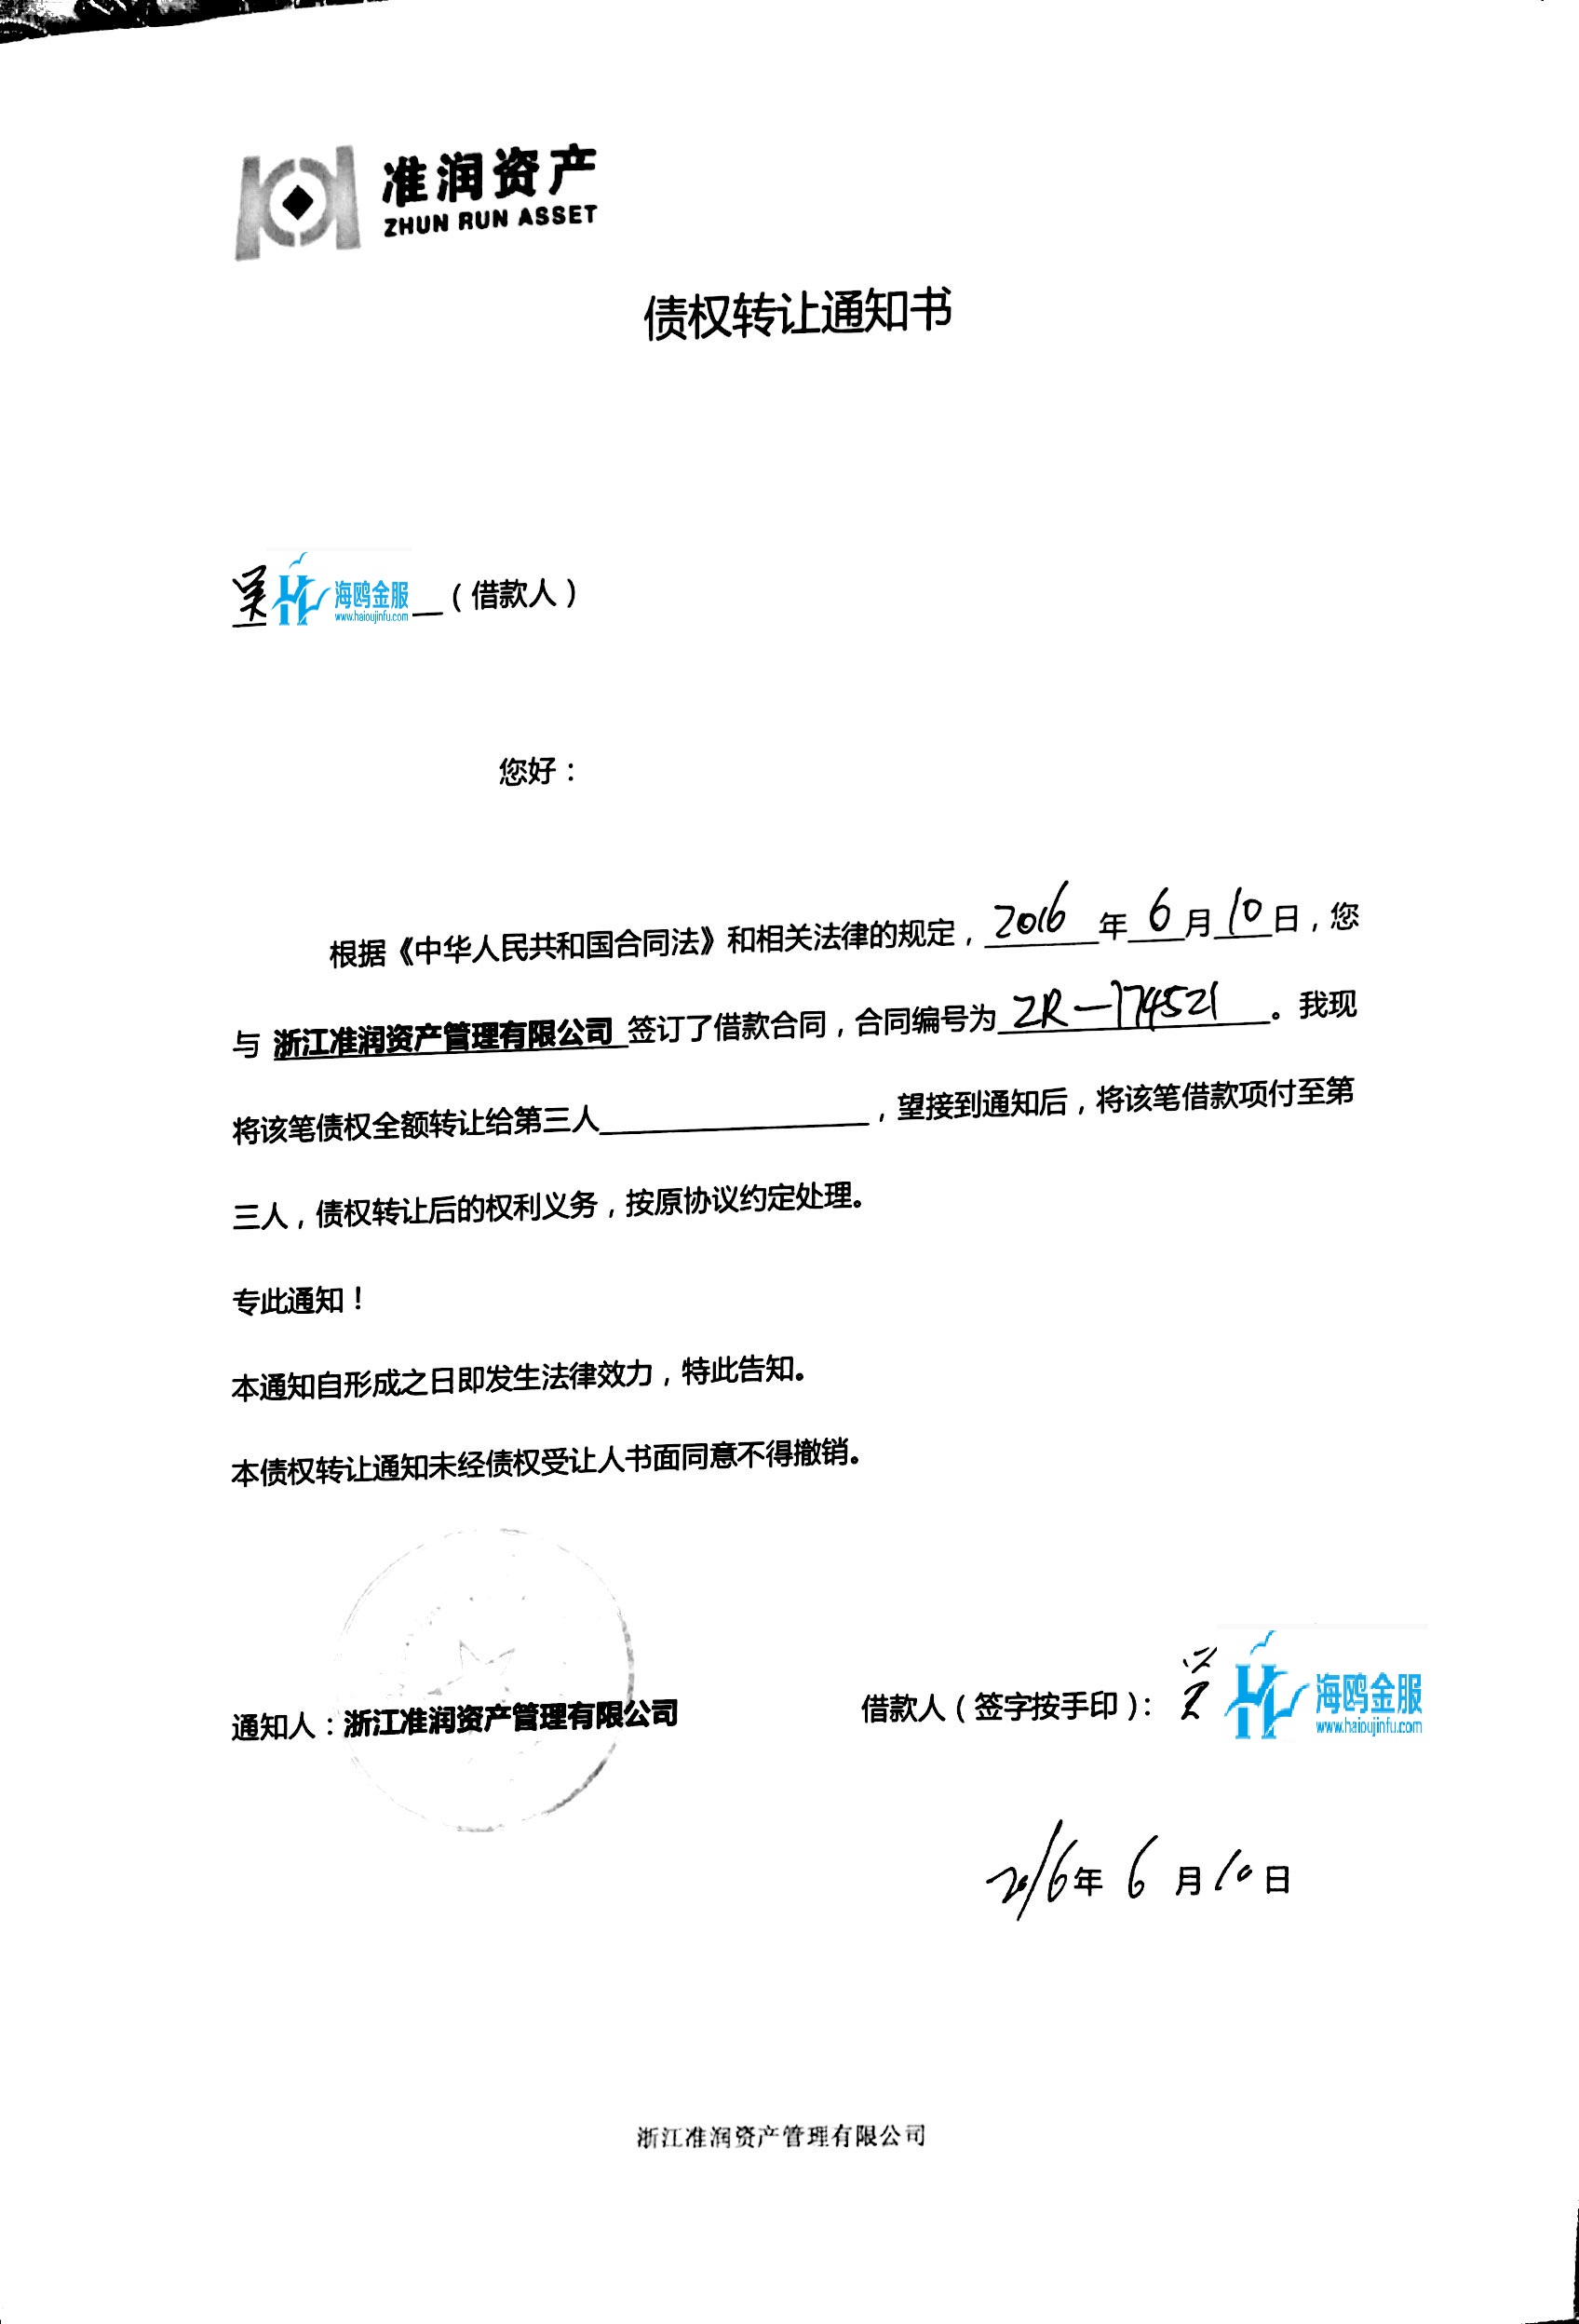 准润资产
ZHUN RUN ASSET
债权转让通知书
吴 海鸥金服 （借款人）
www.haioujinfu.com
您好：
根据《中华人民共和国合同法》和相关法律的规定，2016年6月10日，您
与 浙江准润资产管理有限公司 签订了借款合同，合同编号为ZR-174521。我现
将该笔债权全额转让给第三人____________，望接到通知后，将该笔借款项付至第
三人，债权转让后的权利义务，按原协议约定处理。
专此通知！
本通知自形成之日即发生法律效力，特此告知。
本债权转让通知未经债权受让人书面同意不得撤销。
通知人：浙江准润资产管理有限公司 借款人（签字按手印）： 海鸥金服
www.haioujinfu.com
2016年6月10日
浙江准润资产管理有限公司